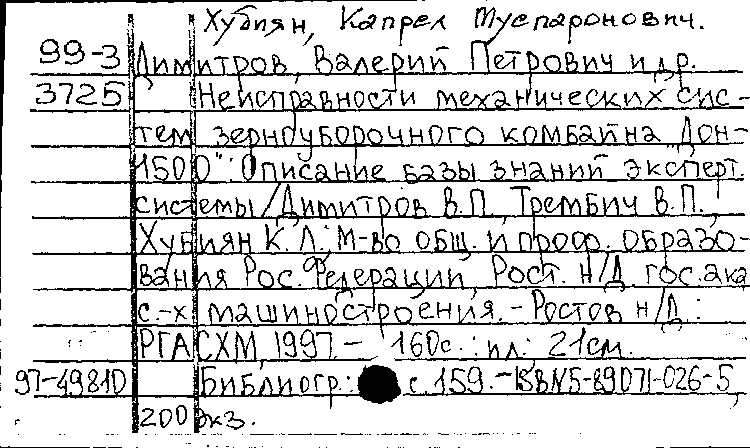 Хубиян, Капрел Туспаронович.
99-3 Димитров, Валерий Петрович и др.
3725 Неисправности механических сис-
тем зерноуборочного комбайна "Дон-
1500": Описание базы знаний эксперт.
системы/Димитров В.П., Трембич В.П.,
Хубиян К.Л.; М-во общ. и проф. образо-
вания Рос. Федерации, Рост. н/Д гос. ака
с.-х машиностроения. - Ростов н/Д:
РГАСХМ, 1997. - 160с.: ил; 21см.
97-49810 Библиогр.: с. 159. - ISBN5-89071-026-5,
200 экз.